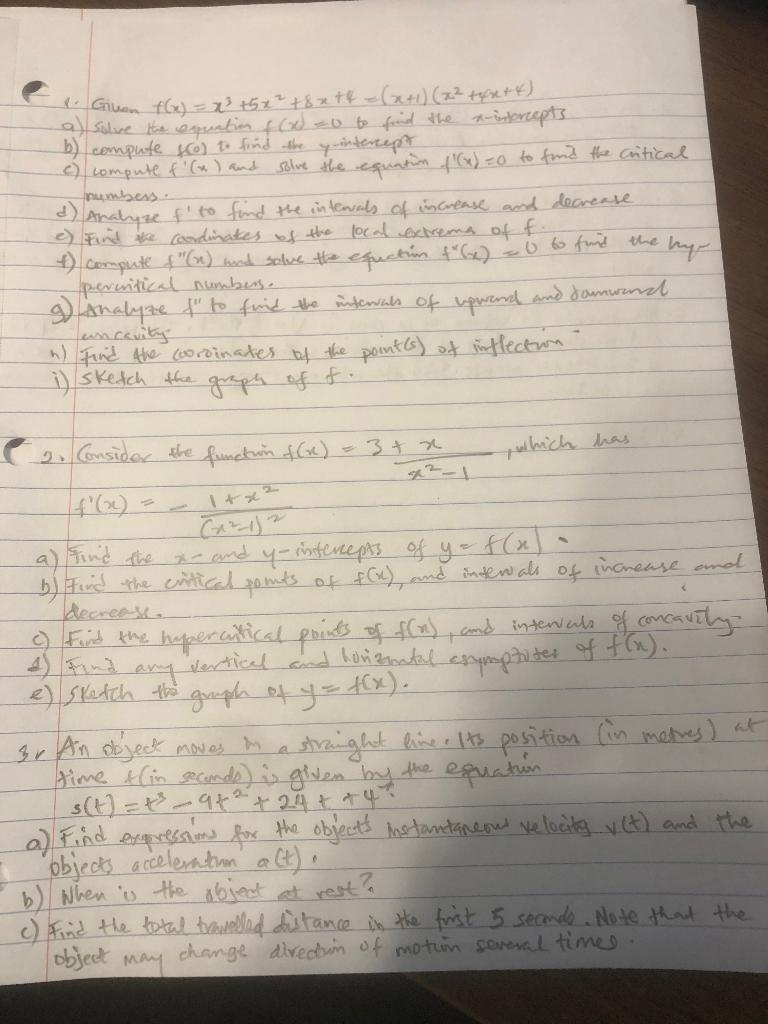 1. Given f(x) = x³ +5x² +8x +4 = (x+1)(x² +4x+4)
a) Solve the equation f(x) = 0 to find the x-intercepts
b) compute f(0) to find the y-intercept
c) compute f'(x) and solve the equation f'(x) = 0 to find the critical
numbers.
d) Analyze f' to find the intervals of increase and decrease
e) Find the coordinates of the local extrema of f.
f) compute f"(x) and solve the equation f"(x) = 0 to find the hy-
percritical numbers.
g) Analyze f" to find the intervals of upward and downward
concavity
h) Find the coordinates of the point(s) of inflection
i) sketch the graph of f.
2. Consider the function f(x) = 3 + x/(x²-1), which has
f'(x) = - (1+x²)/(x²-1)²
a) Find the x- and y-intercepts of y = f(x).
b) Find the critical points of f(x), and intervals of increase and
decrease.
c) Find the hypercritical points of f(x), and intervals of concavity
d) Find any vertical and horizontal asymptotes of f(x).
e) Sketch the graph of y = f(x).
3. An object moves in a straight line. Its position (in metres) at
time t (in seconds) is given by the equation
s(t) = t³ - 9t² + 24t + 4.
a) Find expressions for the object's instantaneous velocity v(t) and the
objects acceleration a(t).
b) When is the object at rest?
c) Find the total travelled distance in the first 5 seconds. Note that the
object may change direction of motion several times.